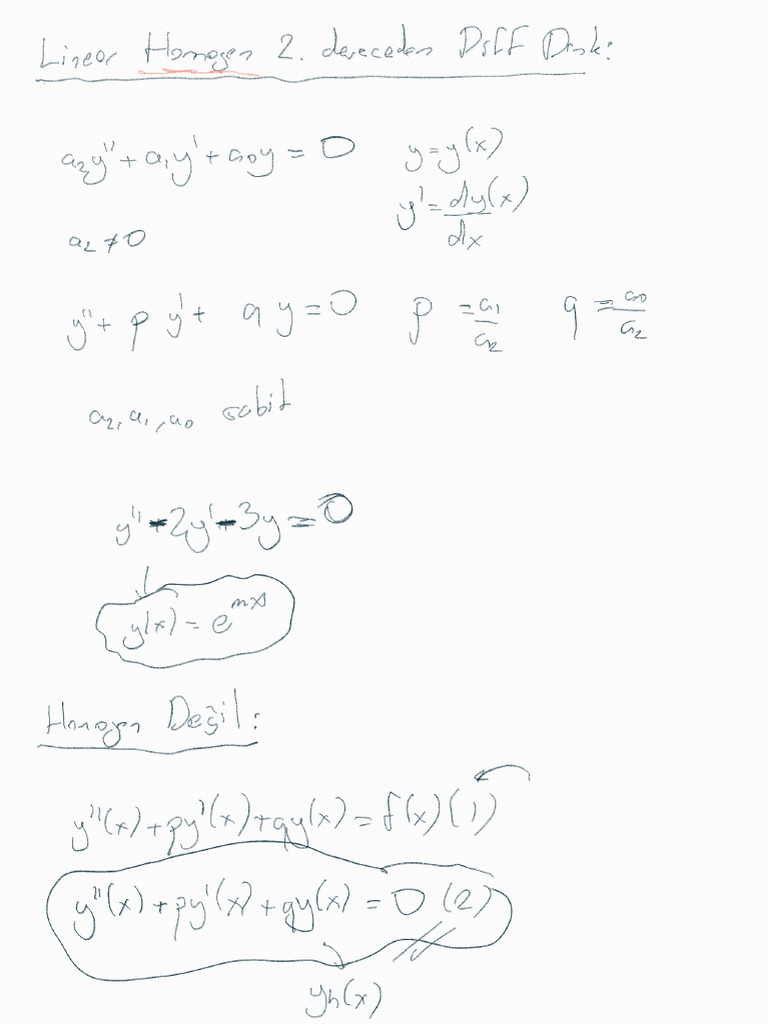 Linear Homogen 2. dereceden Diff Denk:
a₂y'' + a₁y' + a₀y = 0   y = y(x)
y' = dy(x)/dx
a₂ ≠ 0
y'' + p y' + q y = 0   p = a₁/a₂   q = a₀/a₂
a₂, a₁, a₀ sabit
y'' - 2y' - 3y = 0
y(x) = e^{mx}
Homogen Değil:
y''(x) + py'(x) + qy(x) = f(x) (1)
y''(x) + py'(x) + qy(x) = 0 (2)
yh(x)